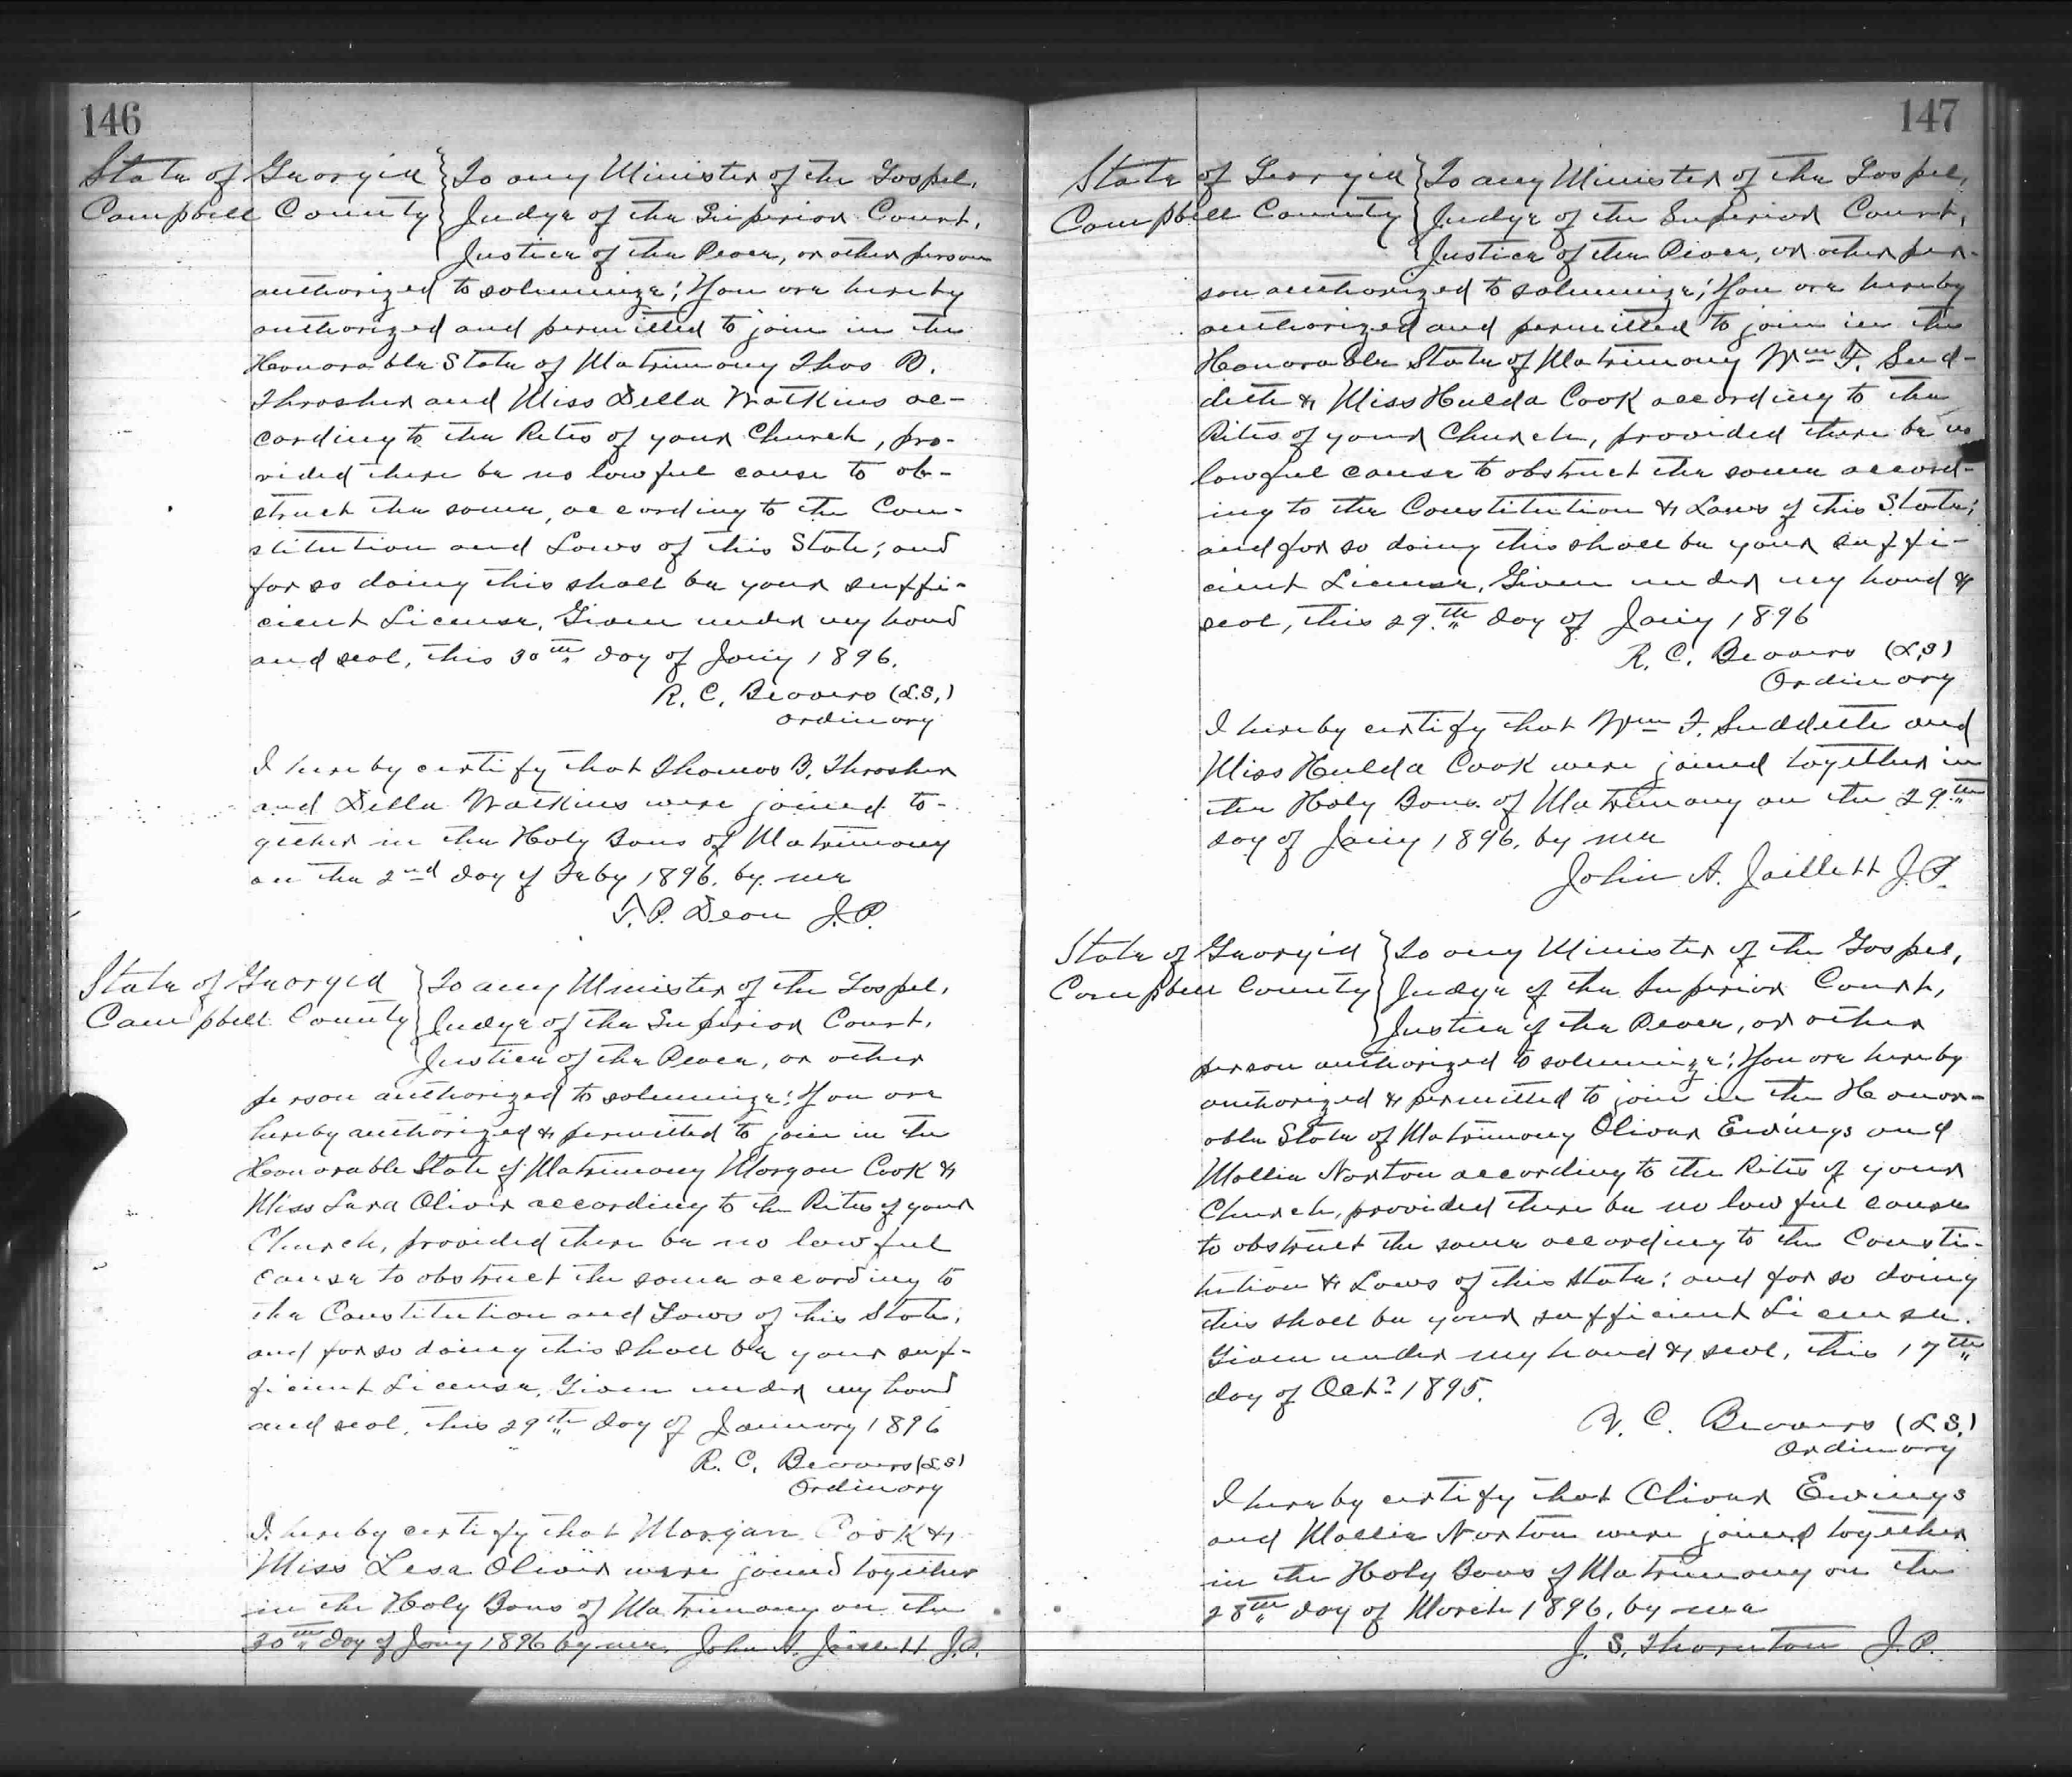 146
State of Georgia } To any Minister of the Gospel,
Campbell County } Judge of the Superior Court,
Justice of the Peace, or other person
authorized to solemnize; You are hereby
authorized and permitted to join in the
Honorable State of Matrimony Thos B.
Thrasher and Miss Della Watkins ac-
cording to the Rites of your Church, pro-
vided there be no lawful cause to ob-
struct the same, according to the Con-
stitution and Laws of this State; and
for so doing this shall be your suffi-
cient License, Given under my hand
and seal, this 30th day of Jany 1896.
R. C. Beavers (L.S.)
Ordinary
I hereby certify that Thomas B. Thrasher
and Della Watkins were joined to-
gether in the Holy Bans of Matrimony
on the 2nd day of Feby 1896. by me
T. P. Dean J.P.
State of Georgia } To any Minister of the Gospel,
Campbell County } Judge of the Superior Court,
Justice of the Peace, or other
person authorized to solemnize; You are
hereby authorized & permitted to join in the
Honorable State of Matrimony Morgan Cook &
Miss Oliver according to the Rites of your
Church, provided there be no lawful
cause to obstruct the same according to
the Constitution and Laws of this State;
and for so doing this shall be your suf-
ficient License, Given under my hand
and seal, this 29th day of January 1896
R. C. Beavers (L.S)
Ordinary
I hereby certify that Morgan Cook &
Miss Oliver were joined together
in the Holy Bans of Matrimony on the
30th day of Jany 1896 by me. John A. Jaillett J.P.
147
State of Georgia } To any Minister of the Gospel,
Campbell County } Judge of the Superior Court,
Justice of the Peace, or other per-
son authorized to solemnize; You are hereby
authorized and permitted to join in the
Honorable State of Matrimony Wm F. Sud-
deth & Miss Hulda Cook according to the
Rites of your Church, provided there be no
lawful cause to obstruct the same accord-
ing to the Constitution & Laws of this State;
and for so doing this shall be your suffi-
cient License, Given under my hand &
seal, this 29th day of Jany 1896
R. C. Beavers (L.S)
Ordinary
I hereby certify that Wm F. Suddeth and
Miss Hulda Cook were joined together in
the Holy Bans of Matrimony on the 29th
day of Jany 1896, by me
John A. Jaillett J.P.
State of Georgia } To any Minister of the Gospel,
Campbell County } Judge of the Superior Court,
Justice of the Peace, or other
person authorized to solemnize; You are hereby
authorized & permitted to join in the Honor-
able State of Matrimony Oliver Ewings and
Mollie Norton according to the Rites of your
Church, provided there be no lawful cause
to obstruct the same according to the Consti-
tution & Laws of this State; and for so doing
this shall be your sufficient License.
Given under my hand & seal, this 17th
day of Oct. 1895.
R. C. Beavers (L.S.)
Ordinary
I hereby certify that Oliver Ewings
and Mollie Norton were joined together
in the Holy Bans of Matrimony on the
28th day of March 1896, by me
J. S. Thornton J.P.